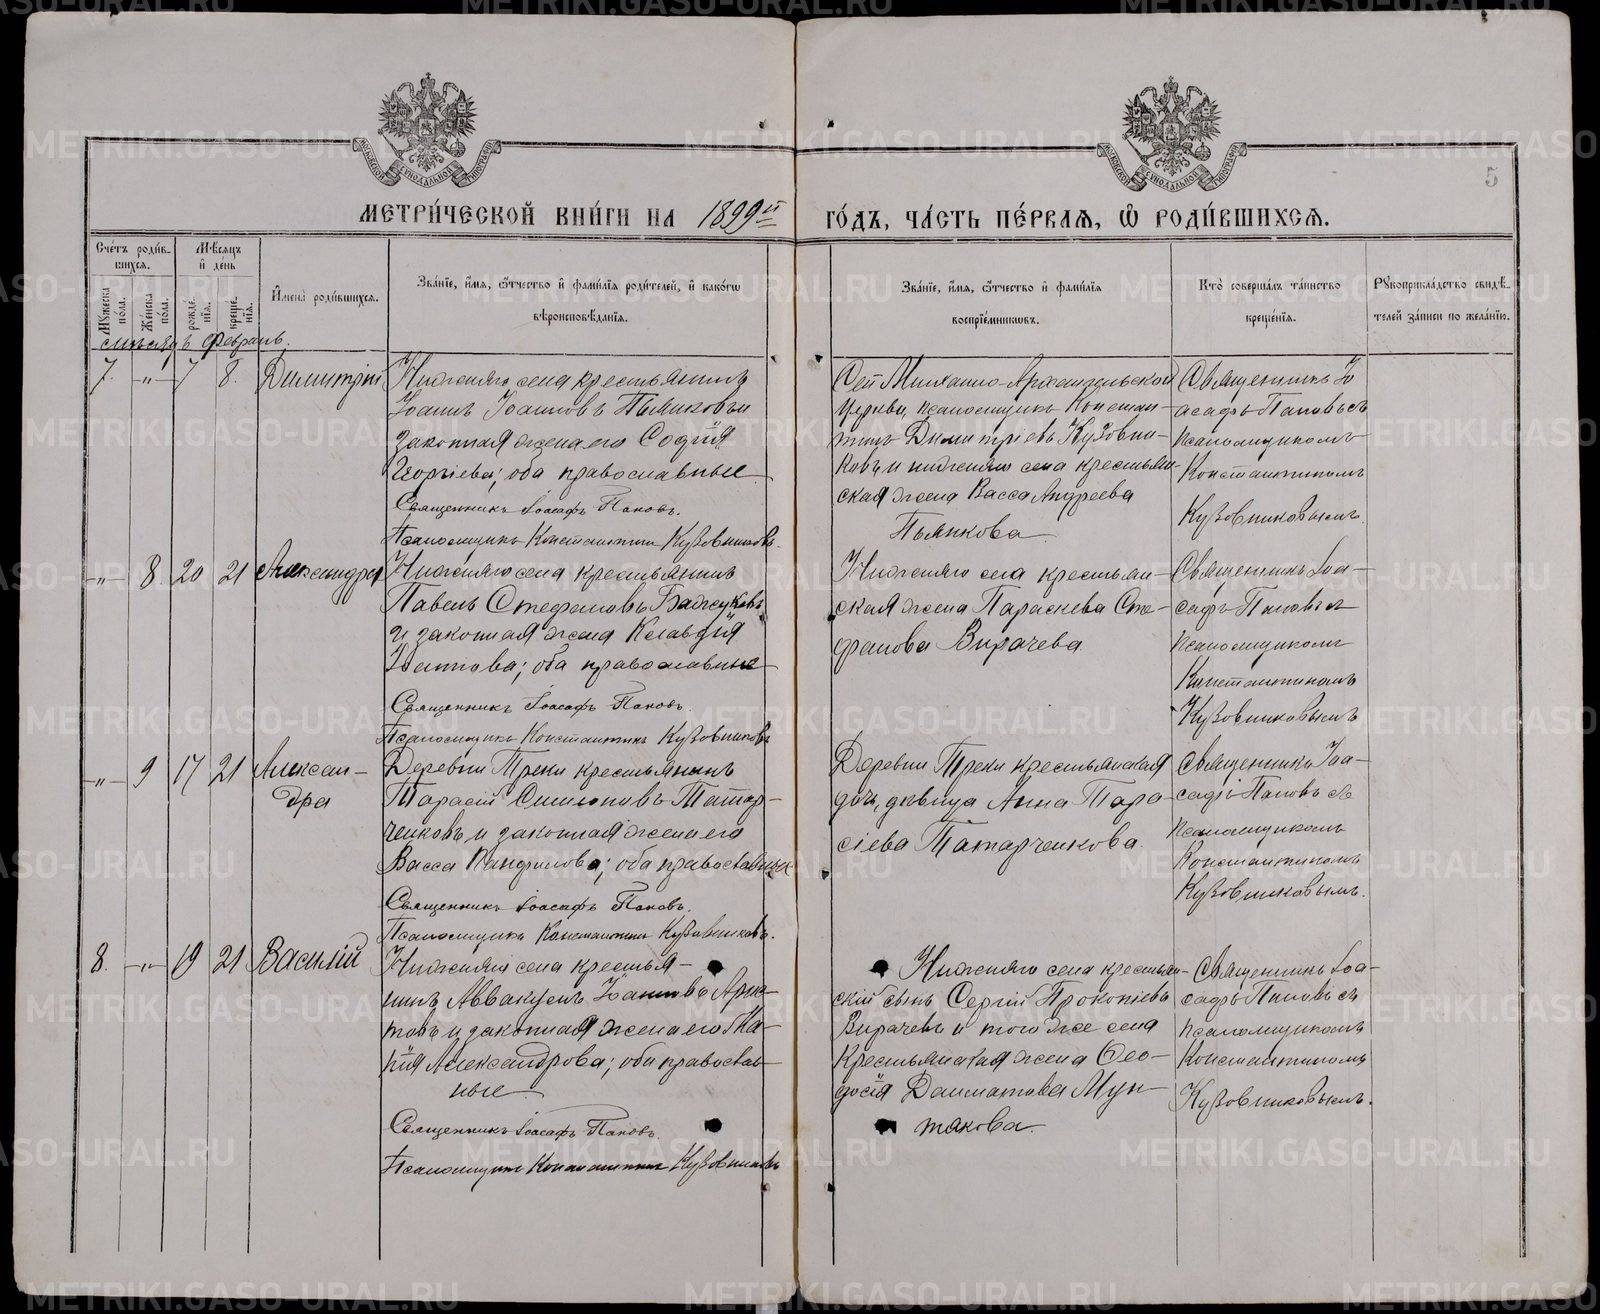 МЕТРИЧЕСКОЙ КНИГИ НА 1899й ГОДЪ, ЧАСТЬ ПЕРВАЯ, Ѡ РОДИВШИХСЯ.
5
Счетъ родив-
шихся.
Мужеска пола.
Женска пола.
Мѣсяцъ
и день
рожде-
нія.
креще-
нія.
Имена родившихся.
Званіе, имя, отчество и фамилія родителей, и какого
вѣроисповѣданія.
Званіе, имя, отчество и фамилія
воспріемниковъ.
Кто совершалъ таинство
крещенія.
Рукоприкладство свидѣ-
телей записи по желанію.
Февраль.
7. -"- 7 8. Димитрій
Нижняго села крестьянинъ
Іоаннъ Іоанновъ Пьянковъ и
законная жена его Софія
Георгіева; оба православные
Священникъ Іоасафъ Поповъ.
Псаломщикъ Константинъ Кузовниковъ.
Сей Михаило-Архангельской
церкви псаломщикъ Констан-
тинъ Димитріевъ Кузовни-
ковъ и нижняго села крестьян-
ская жена Васса Андреева
Пьянкова
Священникъ Іо
асафъ Поповъ съ
псаломщикомъ
Константиномъ
Кузовниковымъ.
-"- 8. 20 21 Александра
Нижняго села крестьянинъ
Павелъ Стефановъ
и законная жена Клавдія
Іоаннова; оба православные
Священникъ Іоасафъ Поповъ.
Псаломщикъ Константинъ Кузовниковъ
Нижняго села крестьян-
ская жена Параскева Сте-
фанова Вирачева
Священникъ Іоа-
сафъ Поповъ съ
псаломщикомъ
Константиномъ
Кузовниковымъ
-"- 9 17 21 Алексан-
дра
Деревни Треки крестьянинъ
Тарасій Симеоновъ Татар-
ченковъ и законная жена его
Васса Панфилова; оба православные
Священникъ Іоасафъ Поповъ.
Псаломщикъ Константинъ Кузовниковъ.
Деревни Треки крестьянская
дочь, дѣвица Анна Тара-
сіева Татарченкова.
Священникъ Іоа-
сафъ Поповъ съ
псаломщикомъ
Константиномъ
Кузовниковымъ.
8. -"- 19 21 Василій
Нижняго села крестья-
нинъ Аввакумъ Іоанновъ
и законная жена его Ма-
рія Александрова; оба православ-
ные
Священникъ Іоасафъ Поповъ.
Псаломщикъ Константинъ Кузовниковъ
Нижняго села крестьян-
скій сынъ Сергій Прокопіевъ
Вирачевъ и того же села
крестьянская жена Ѳео-
досія Далматова Мун-
такова.
Священникъ Іоа-
сафъ Поповъ съ
псаломщикомъ
Константиномъ
Кузовниковымъ.
METRIKI.GASO-URAL.RU